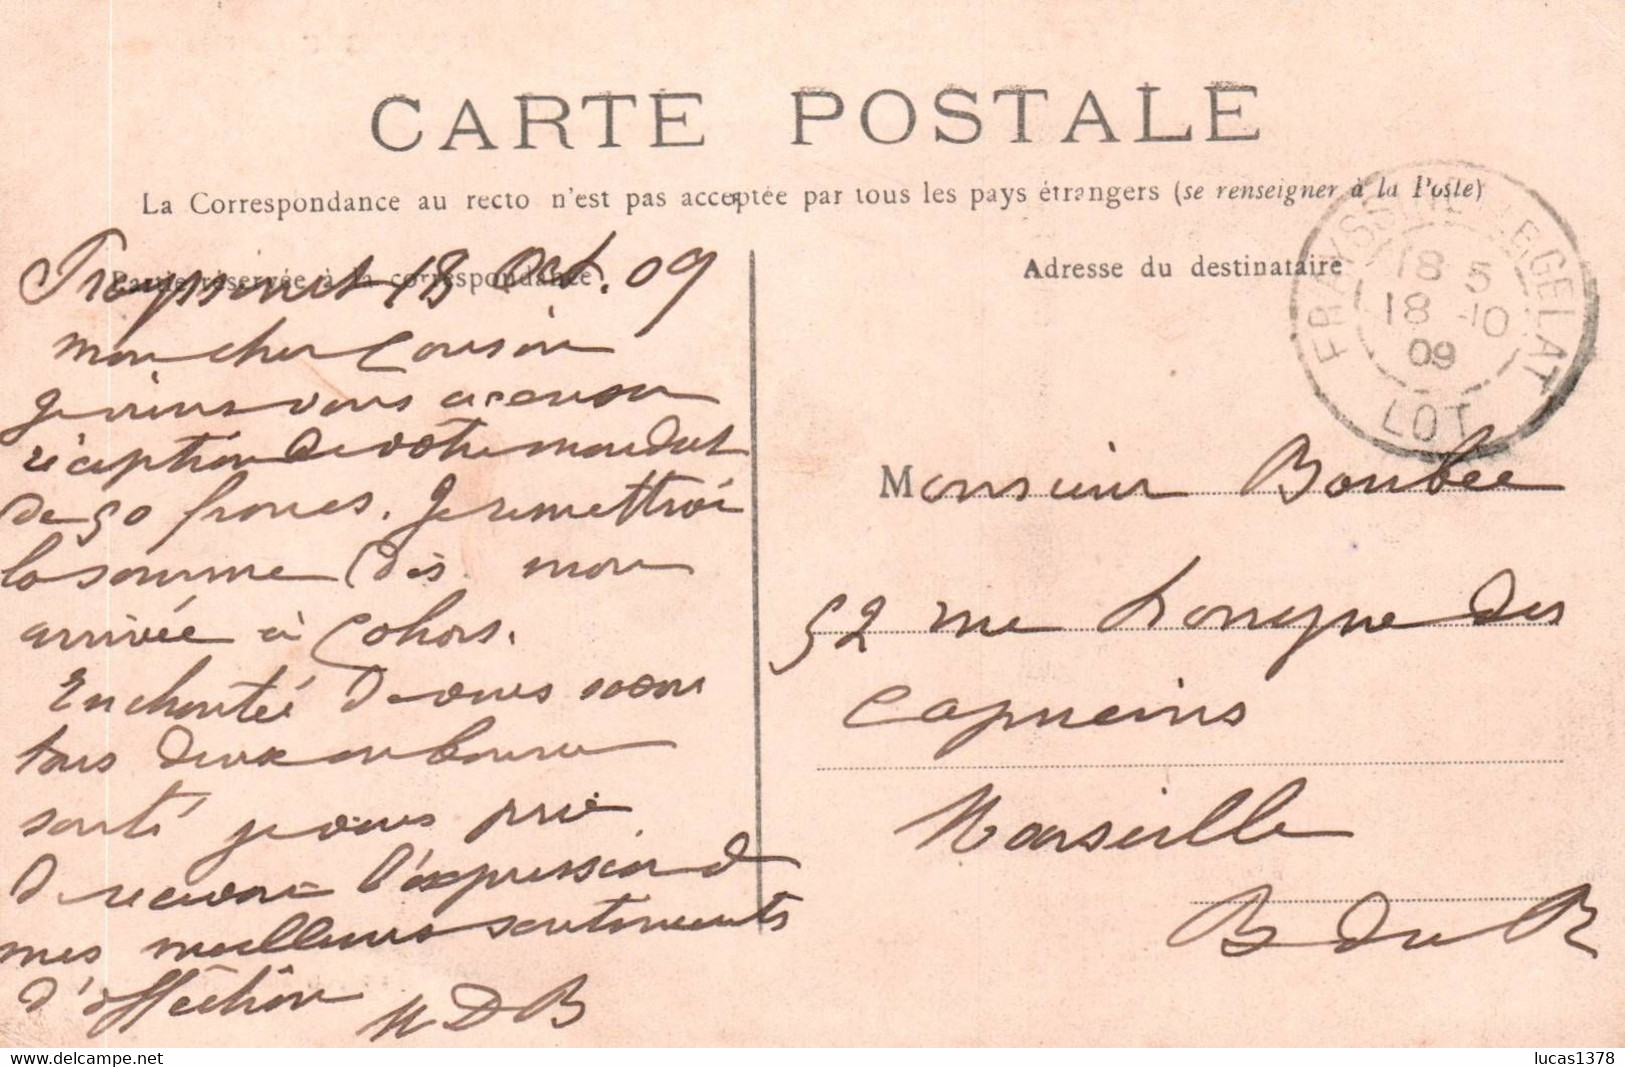 CARTE POSTALE
La Correspondance au recto n'est pas acceptée par tous les pays étrangers (se renseigner à la Poste)
Partie réservée à la correspondance
Frayssinet 18 Oct. 09
mon cher Cousin
Je viens vous accuser
réception de votre mandat
de 50 francs. Je remettrai
la somme dès mon
arrivée à Cahors.
Enchantée de vous savoir
tous deux en bonne
santé je vous prie
de recevoir l'expression de
mes meilleurs sentiments
d'affection
M D B
Adresse du destinataire
FRAYSSINET-LE-GELAT
18 5
18 -10
09
LOT
Monsieur Boubée
52 rue Longue des
Capucins
Marseille
B du R
lucas1378